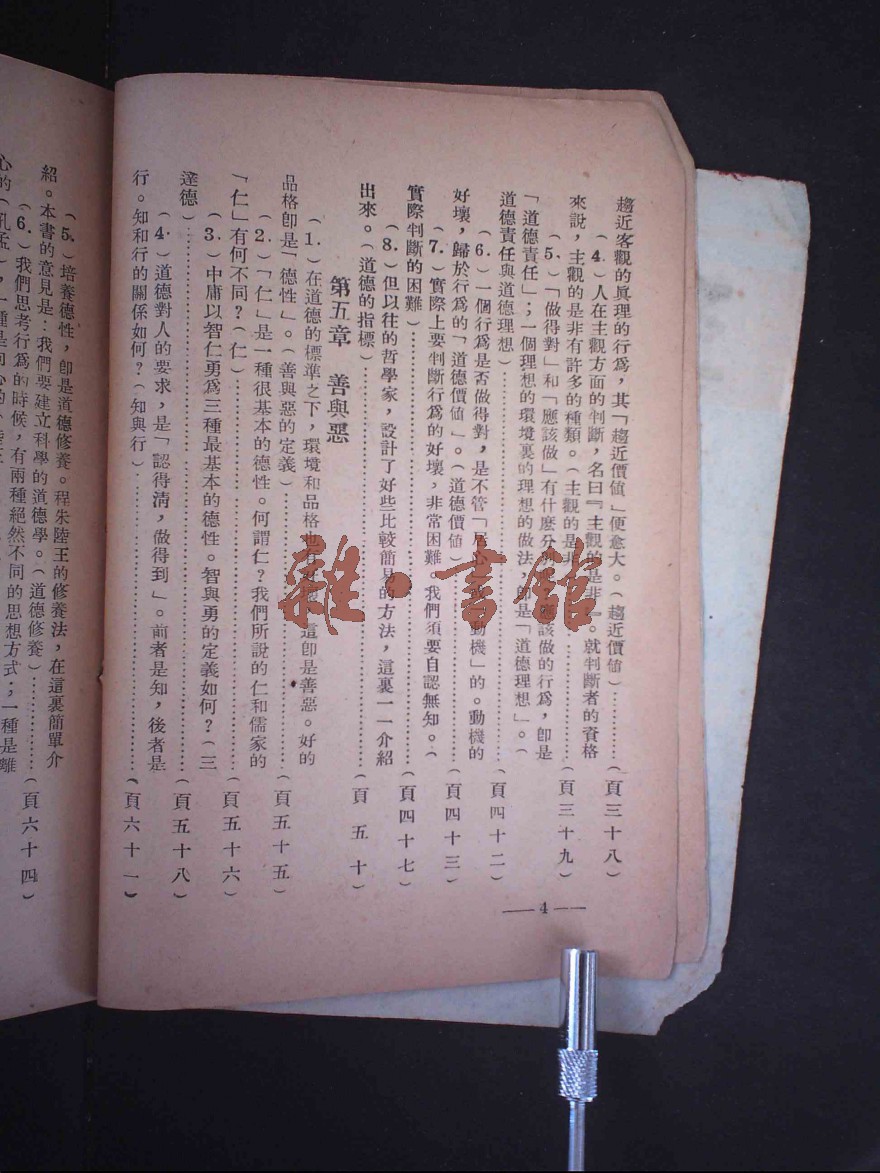 趨近客觀的眞理的行爲，其「趨近價値」便愈大。（趨近價値）……（頁三十八）
（4.）人在主觀方面的判斷，名曰『主觀的是非』。就判斷者的資格
來說，主觀的是非有許多的種類。（主觀的是非……（頁三十九）
（5.）「做得對」和「應該做」有什麼分別 應該做的行爲，卽是
「道德責任」；一個理想的環境裏的理想的做法，卽是「道德理想」。（
道德責任與道德理想）……（頁四十二）
（6.）一個行爲是否做得對，是不管「 動機」的。動機的
好壞，歸於行爲的「道德價値」。（道德價値）……（頁四十三）
（7.）實際上要判斷行爲的好壞，非常困難。我們須要自認無知。（
實際判斷的困難）……（頁四十七）
（8.）但以往的哲學家，設計了好些比較簡易的方法，這裏一一介紹
出來。（道德的指標）……（頁五十）
第五章　善與惡
（1.）在道德的標準之下，環境和品格也有 這卽是善惡。好的
品格卽是「德性」。（善與惡的定義）……（頁五十五）
（2.）「仁」是一種很基本的德性。何謂仁？我們所說的仁和儒家的
「仁」有何不同？（仁）……（頁五十六）
（3.）中庸以智仁勇爲三種最基本的德性。智與勇的定義如何？（三
達德）……（頁五十八）
（4.）道德對人的要求，是「認得淸，做得到」。前者是知，後者是
行。知和行的關係如何？（知與行）……（頁六十一）
—4—
（5.）培養德性，卽是道德修養。程朱陸王的修養法，在這裏簡單介
紹。本書的意見是：我們要建立科學的道德學。（道德修養）……（頁六十四）
（6.）我們思考行爲的時候，有兩種絕然不同的思想方式；一種是離
心的（孔孟），一種是向心的
雜·書館